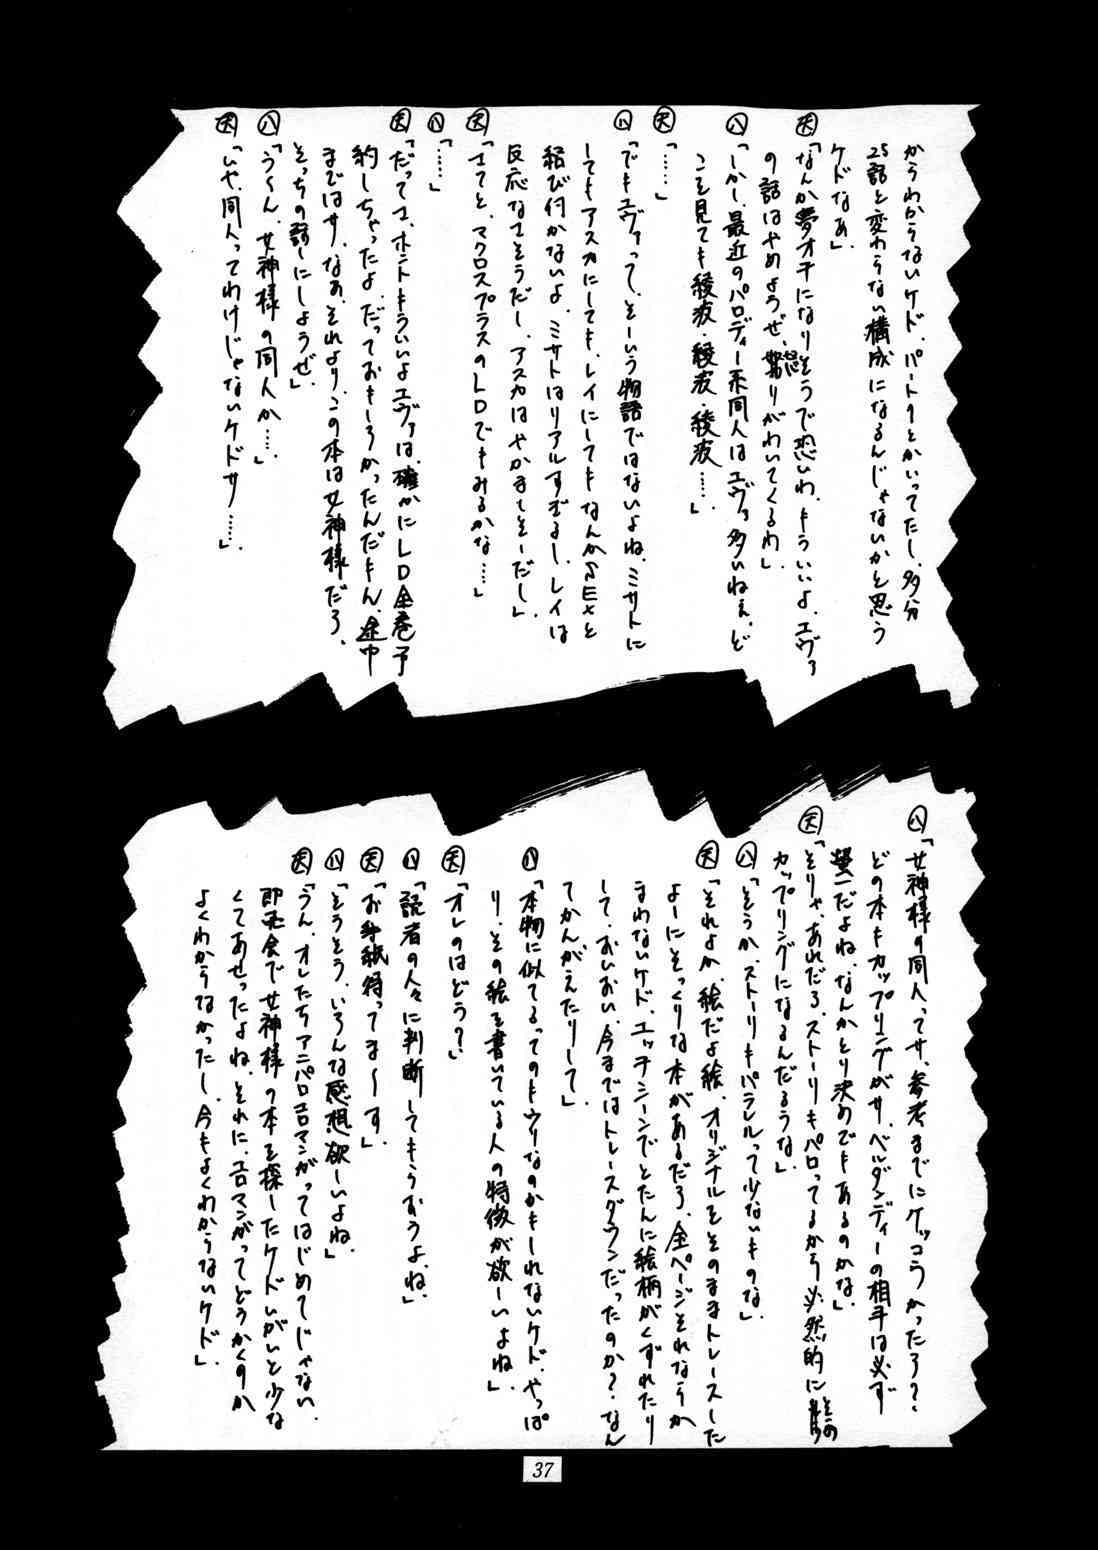 からわからないケド、パート1とかいってたし、多分
25話と変わらない構成になるんじゃないかと思う
ケドなぁ」
天「なんか夢オチになりそうで恐いわ、もういいよ、エヴァ
の話はやめようぜ、怒りがわいてくるわ」
八「しかし、最近のパロディー系同人はエヴァ多いねぇ、ど
こを見ても綾波・綾波・綾波……」
天「……」
八「でもエヴァって、そーいう物語ではないよね、ミサトに
してもアスカにしても、レイにしてもなんかSEXと
結び付かないよ、ミサトはリアルすぎるし、レイは
反応なさそうだし、アスカはやかましそーだし」
天「さてと、マクロスプラスのLDでもみるかな……」
八「……」
天「だってさ、ホントもういいよエヴァは、確かにLD全巻予
約しちゃったよ、だっておもしろかったんだもん、途中
まではサ、なぁ、それより、この本は女神様だろ、
そっちの話しにしようぜ」
八「う〜ん、女神様の同人か……」
天「いや、同人ってわけじゃないケドサ……」
八「女神様の同人ってサ、参考までにケッコうかったろ?、
どの本もカップリングがサ、ベルダンディーの相手は必ず
螢一だよね、なんかとり決めでもあるのかな」
天「そりゃ、あれだろ、ストーリもパロってるから必然的にその
カップリングになるんだろうな」
八「そうか、ストーリもパラレルって少ないものな」
天「それよか、絵だよ絵、オリジナルをそのままトレースした
よーにそっくりな本があるだろ、全ページそれならか
まわないケド、エッチシーンでとたんに絵柄がくずれたり
して、おいおい、今まではトレースダウンだったのか?、なん
てかんがえたりして」
八「本物に似てるってのもウリなのかもしれないケド、やっぱ
り、その絵を書いている人の特徴が欲しいよね」
天「オレのはどう?」
八「読者の人々に判断してもらおうよ、ね」
天「お手紙待ってま〜す」
八「そうそう、いろんな感想欲しいよね」
天「うん、オレたちアニパロエロマンガってはじめてじゃない、
即売会で女神様の本を探したケドいがいと少な
くてあせったよね、それに、エロマンガってどうかくのか
よくわからなかったし、今もよくわからないケド」
37